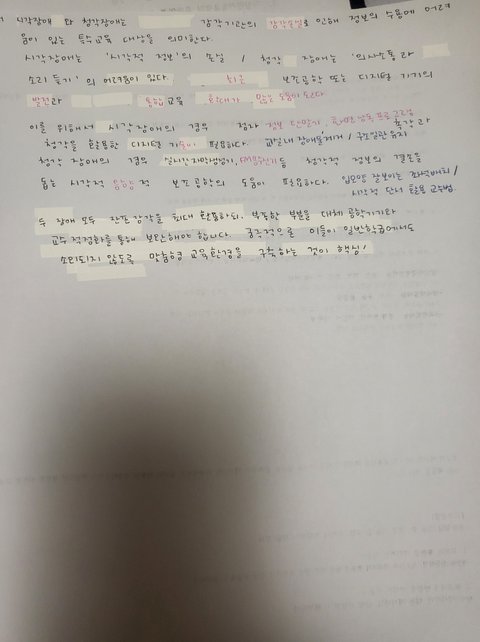 시각장애 와 청각장애는 감각기관의 감각손실로 인해 정보의 수용에 어려
움이 있는 특수교육 대상을 의미한다.
시각장애는 '시각적 정보'의 손실 / 청각 장애는 '의사소통과
소리 듣기'의 어려움이 있다. 최근 보조공학 또는 디지털 기기의
발전과 통합교육 확대가 많은 도움이 되고있다
이를 위해서 시각장애의 경우 점자 정보 단말기 화면 낭독 프로그램 촉각과
청각을 활용한 디지털 기술이 필요하다. 교실내 장애물제거 / 구조일관 유지
청각 장애의 경우 실시간자막생성기, FM보청기 등 청각적 정보의 결손을
돕는 시각적 음향적 보조공학의 도움이 필요하다. 입모양 잘보이는 좌석배치 /
시각적 단서 활용 교수법.
두 장애 모두 잔존감각을 최대 활용하되, 부족한 부분을 대체 공학기기와
교수 적합화를 통해 보완해야 합니다. 궁극적으로 이들이 일반학급에서도
소외되지 않도록 맞춤형 교육환경을 구축하는 것이 핵심!